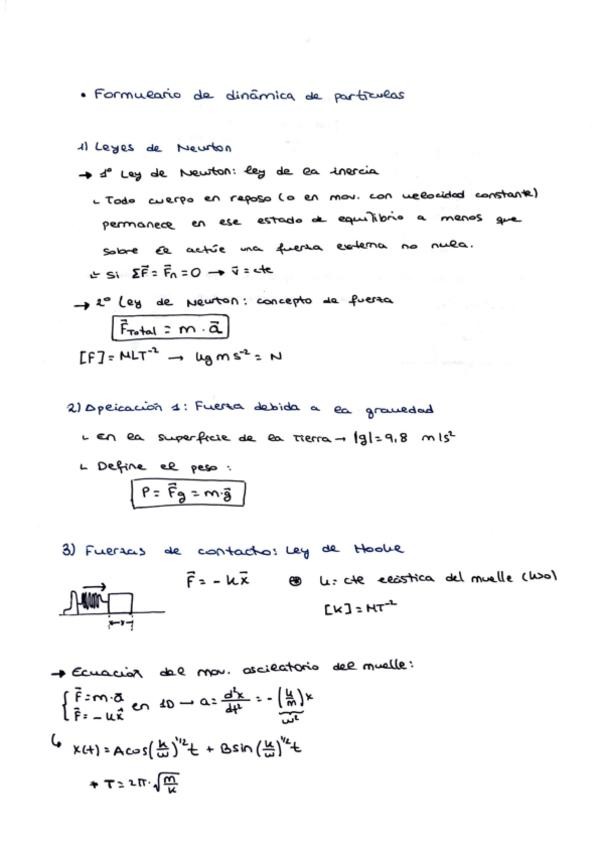 • Formulario de dinámica de partículas
1) Leyes de Newton
→ 1º Ley de Newton: ley de la inercia
↳ Todo cuerpo en reposo (o en mov. con velocidad constante)
permanece en ese estado de equilibrio a menos que
sobre él actúe una fuerza externa no nula.
↳ Si ΣF⃗ = F⃗n = 0 → v⃗ = cte
→ 2º Ley de Newton: concepto de fuerza
F⃗Total = m · a⃗
[F] = MLT⁻² → kg m s⁻² = N
2) Aplicación 1: Fuerza debida a la gravedad
↳ En la superficie de la Tierra → |g| = 9,8 m/s²
↳ Define el peso:
P = F⃗g = m·g⃗
3) Fuerzas de contacto: Ley de Hooke
F⃗ = - k x⃗ k: cte elástica del muelle (k>0)
[K] = MT⁻²
→ Ecuación del mov. oscilatorio del muelle:
{ F⃗ = m·a⃗ F⃗ = - k x⃗ en 1D → a = d²x/dt² = - (k/m) x
ω²
↳ x(t) = A cos(k/ω)^1/2 t + B sin(k/ω)^1/2 t
* T = 2π · √(m/k)